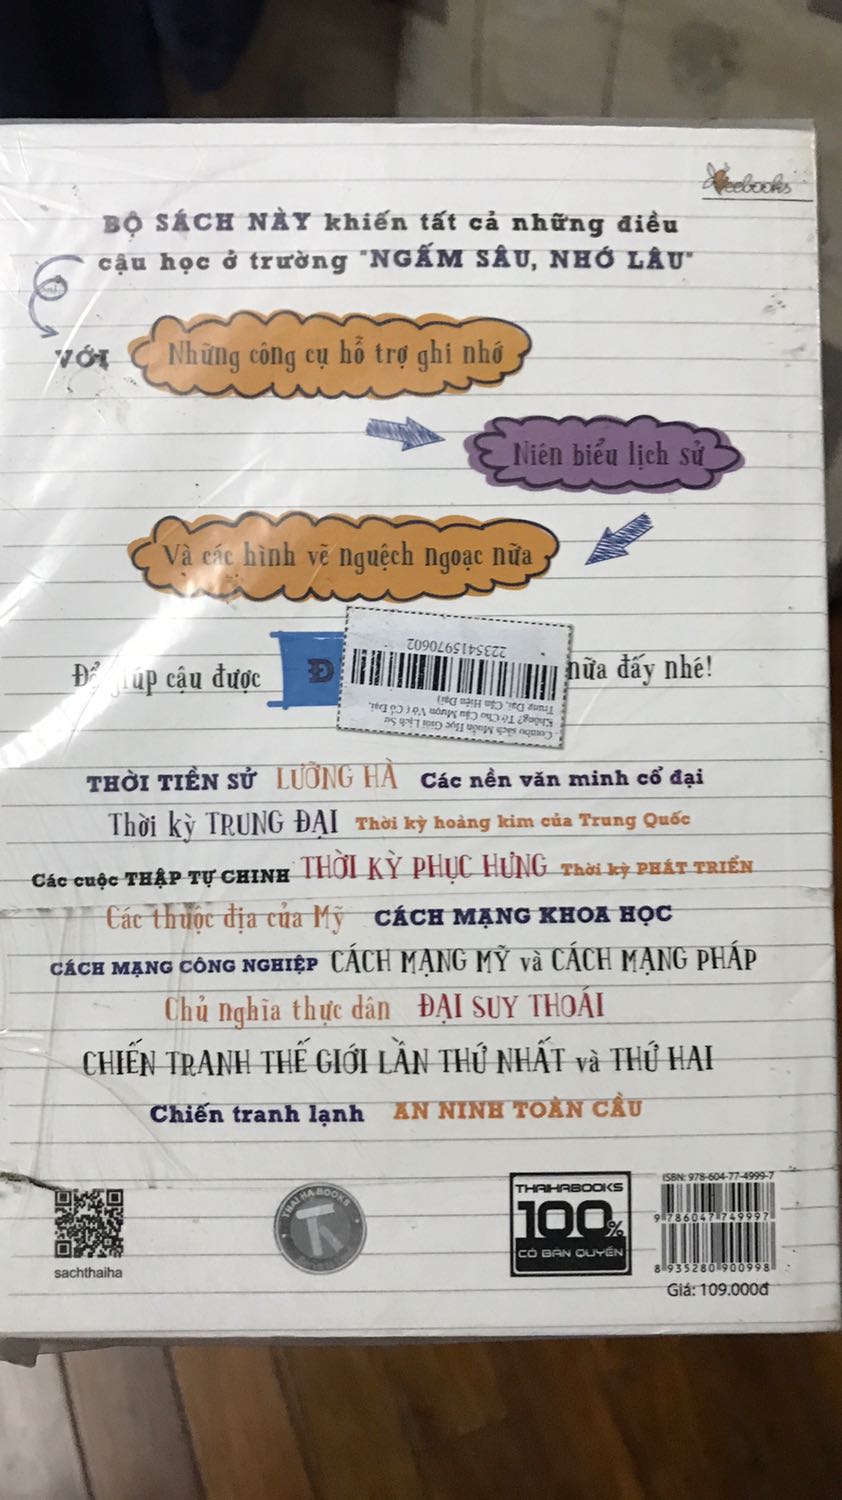 Beebooks
BỘ SÁCH NÀY khiến tất cả những điều
cậu học ở trường "NGẤM SÂU, NHỚ LÂU"
VỚI Những công cụ hỗ trợ ghi nhớ
Niên biểu lịch sử
Và các hình vẽ nguệch ngoạc nữa
Để giúp cậu được Đ nữa đấy nhé!
Combo sách Muốn Học Giỏi Lịch Sử
Không? Tớ Cho Cậu Mượn Vở ( Cổ Đại,
Trung Đại, Cận Hiện Đại)
2235415970602
THỜI TIỀN SỬ LƯỠNG HÀ Các nền văn minh cổ đại
Thời kỳ TRUNG ĐẠI Thời kỳ hoàng kim của Trung Quốc
Các cuộc THẬP TỰ CHINH THỜI KỲ PHỤC HƯNG Thời kỳ PHÁT TRIỂN
Các thuộc địa của Mỹ CÁCH MẠNG KHOA HỌC
CÁCH MẠNG CÔNG NGHIỆP CÁCH MẠNG MỸ và CÁCH MẠNG PHÁP
Chủ nghĩa thực dân ĐẠI SUY THOÁI
CHIẾN TRANH THẾ GIỚI LẦN THỨ NHẤT và THỨ HAI
Chiến tranh lạnh AN NINH TOÀN CẦU
sachthaiha
THAI HA BOOKS
THAIHABOOKS
100%
CÓ BẢN QUYỀN
ISBN: 978-604-77-4999-7
9 786047 749997
8 935280 900998
Giá: 109.000đ